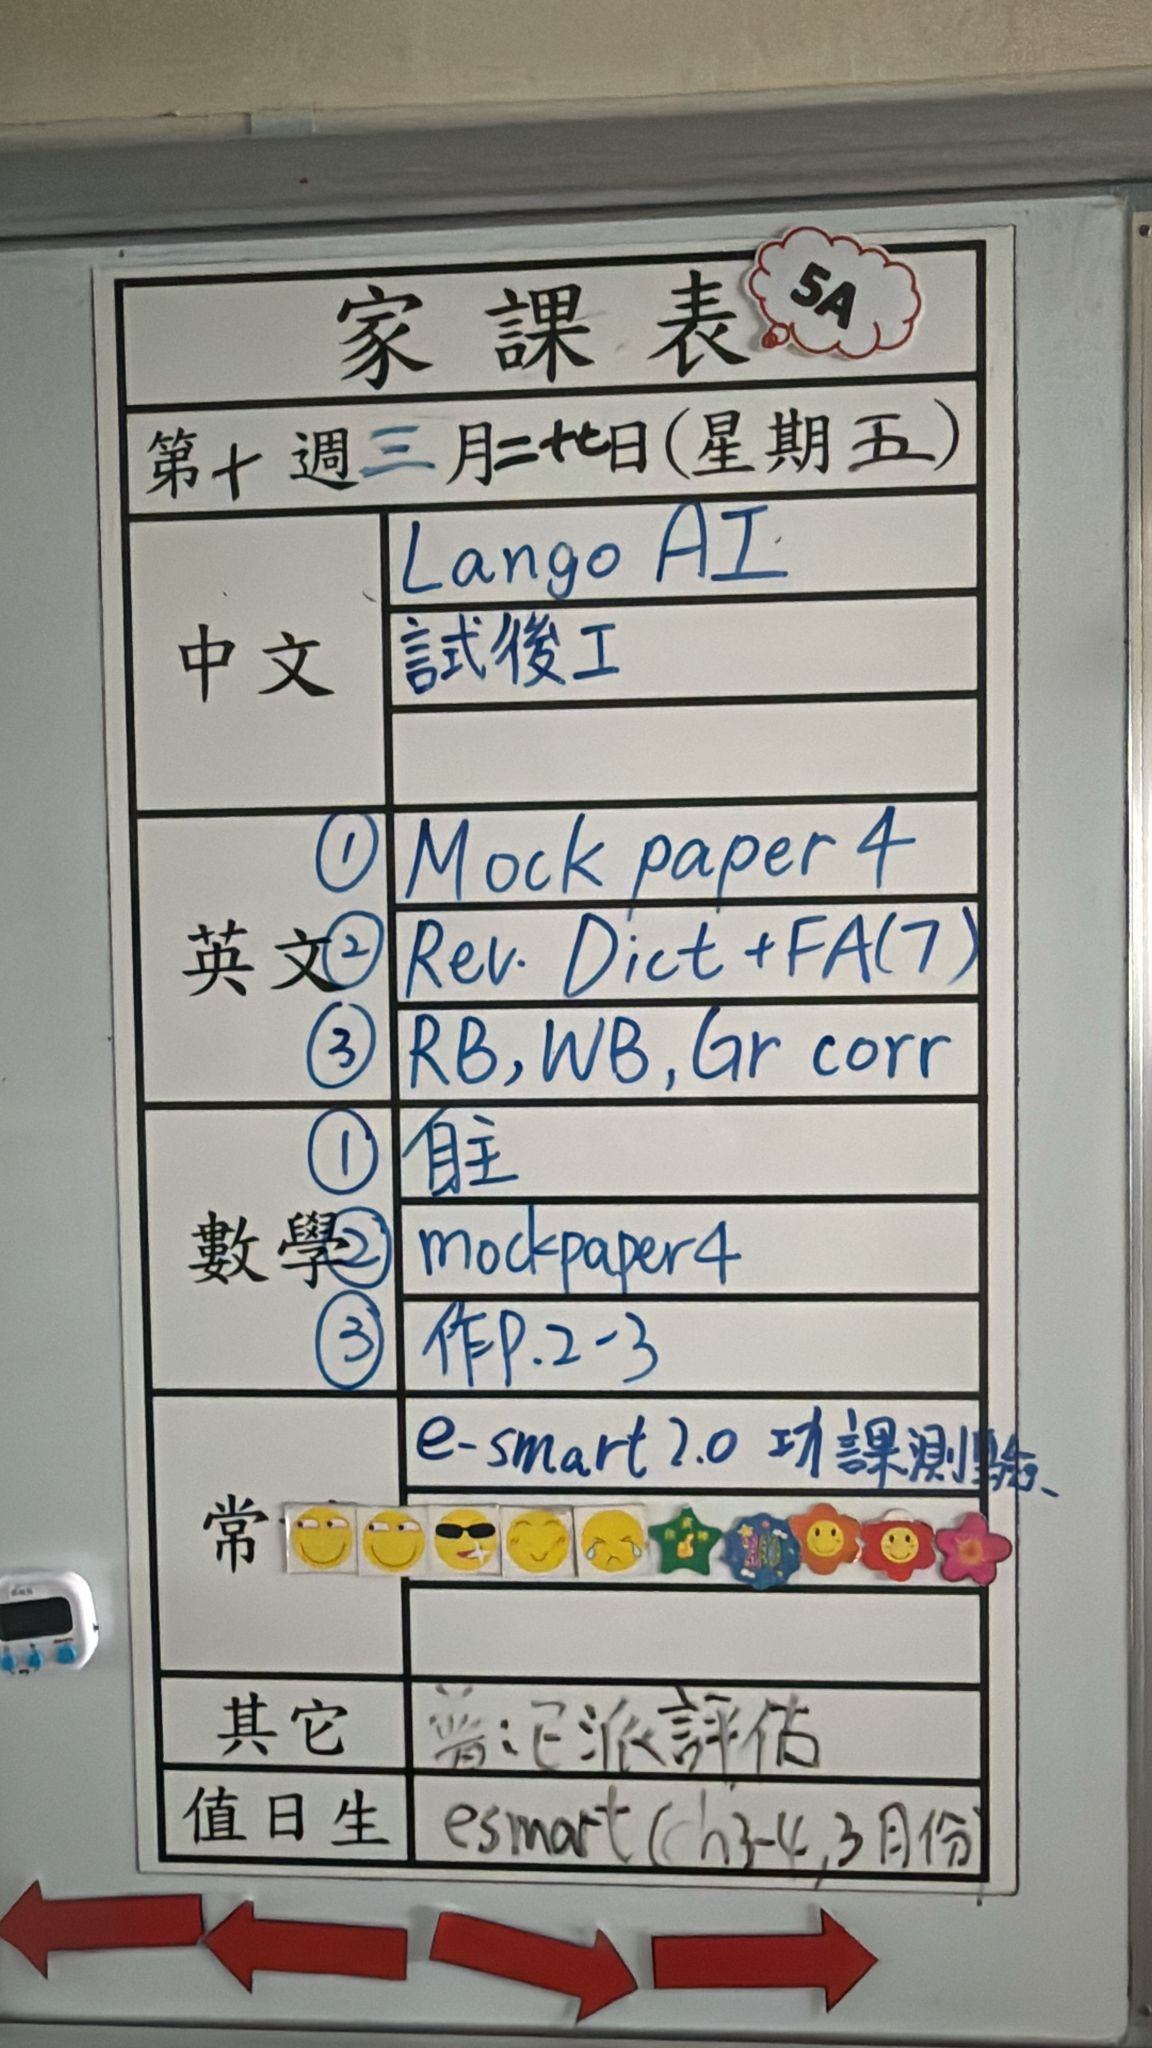 家課表 5A
第十週三月二十七日(星期五)
中文
Lango AI
試後工
英文
① Mock paper 4
② Rev. Dict + FA(7)
③ RB, WB, Gr corr
數學
① 自主
② mockpaper4
③ 作P.2-3
常
e-smart 2.0 功課測驗、
其它
普泛派評估
值日生
esmart (ch3-4,3月份)